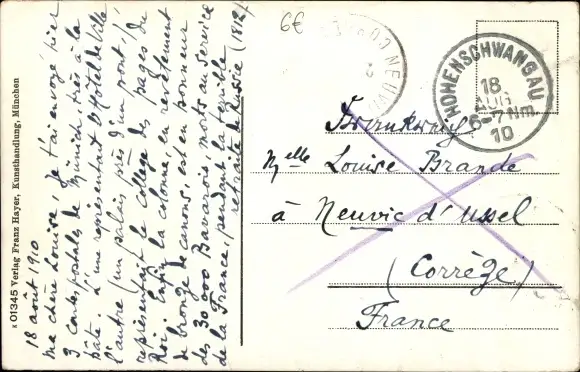 18 août 1910
ma chère Louise, Je t'ai envoyé hier
3 cartes postales de Munich très à la
hâte : l'une représentant l'Hôtel de Ville
l'autre (un palais près d'un pont)
représentait le collège des pages du
Roi. Enfin la colonne, en revêtement
de bronze de canons, est en honneur
des 30 000 Bavarois, morts au service
de la France, pendant la terrible
retraite de Russie (1812).
K 01345 Verlag Franz Hayer, Kunsthandlung, München
6€
HOHENSCHWANGAU
18
AUG
6-7 Nm
10
Frankreich
Melle Louise Brande
à Neuvic d'Ussel
(Corrèze)
France
NEUVIC
CORRÈZE